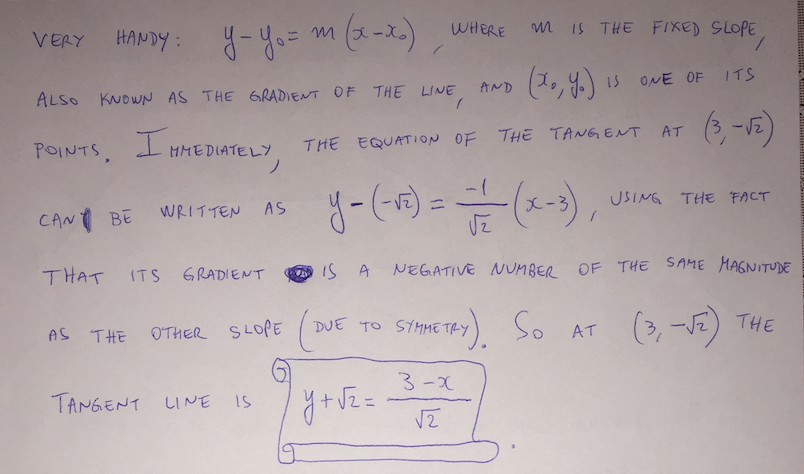 VERY HANDY: y-y₀ = m(x-x₀), WHERE m IS THE FIXED SLOPE,
ALSO KNOWN AS THE GRADIENT OF THE LINE, AND (x₀, y₀) IS ONE OF ITS
POINTS. IMMEDIATELY, THE EQUATION OF THE TANGENT AT (3, -√2)
CAN BE WRITTEN AS y-(-√2) = -1/√2 (x-3), USING THE FACT
THAT ITS GRADIENT IS A NEGATIVE NUMBER OF THE SAME MAGNITUDE
AS THE OTHER SLOPE (DUE TO SYMMETRY). SO AT (3, -√2) THE
TANGENT LINE IS y+√2 = (3-x)/√2 .